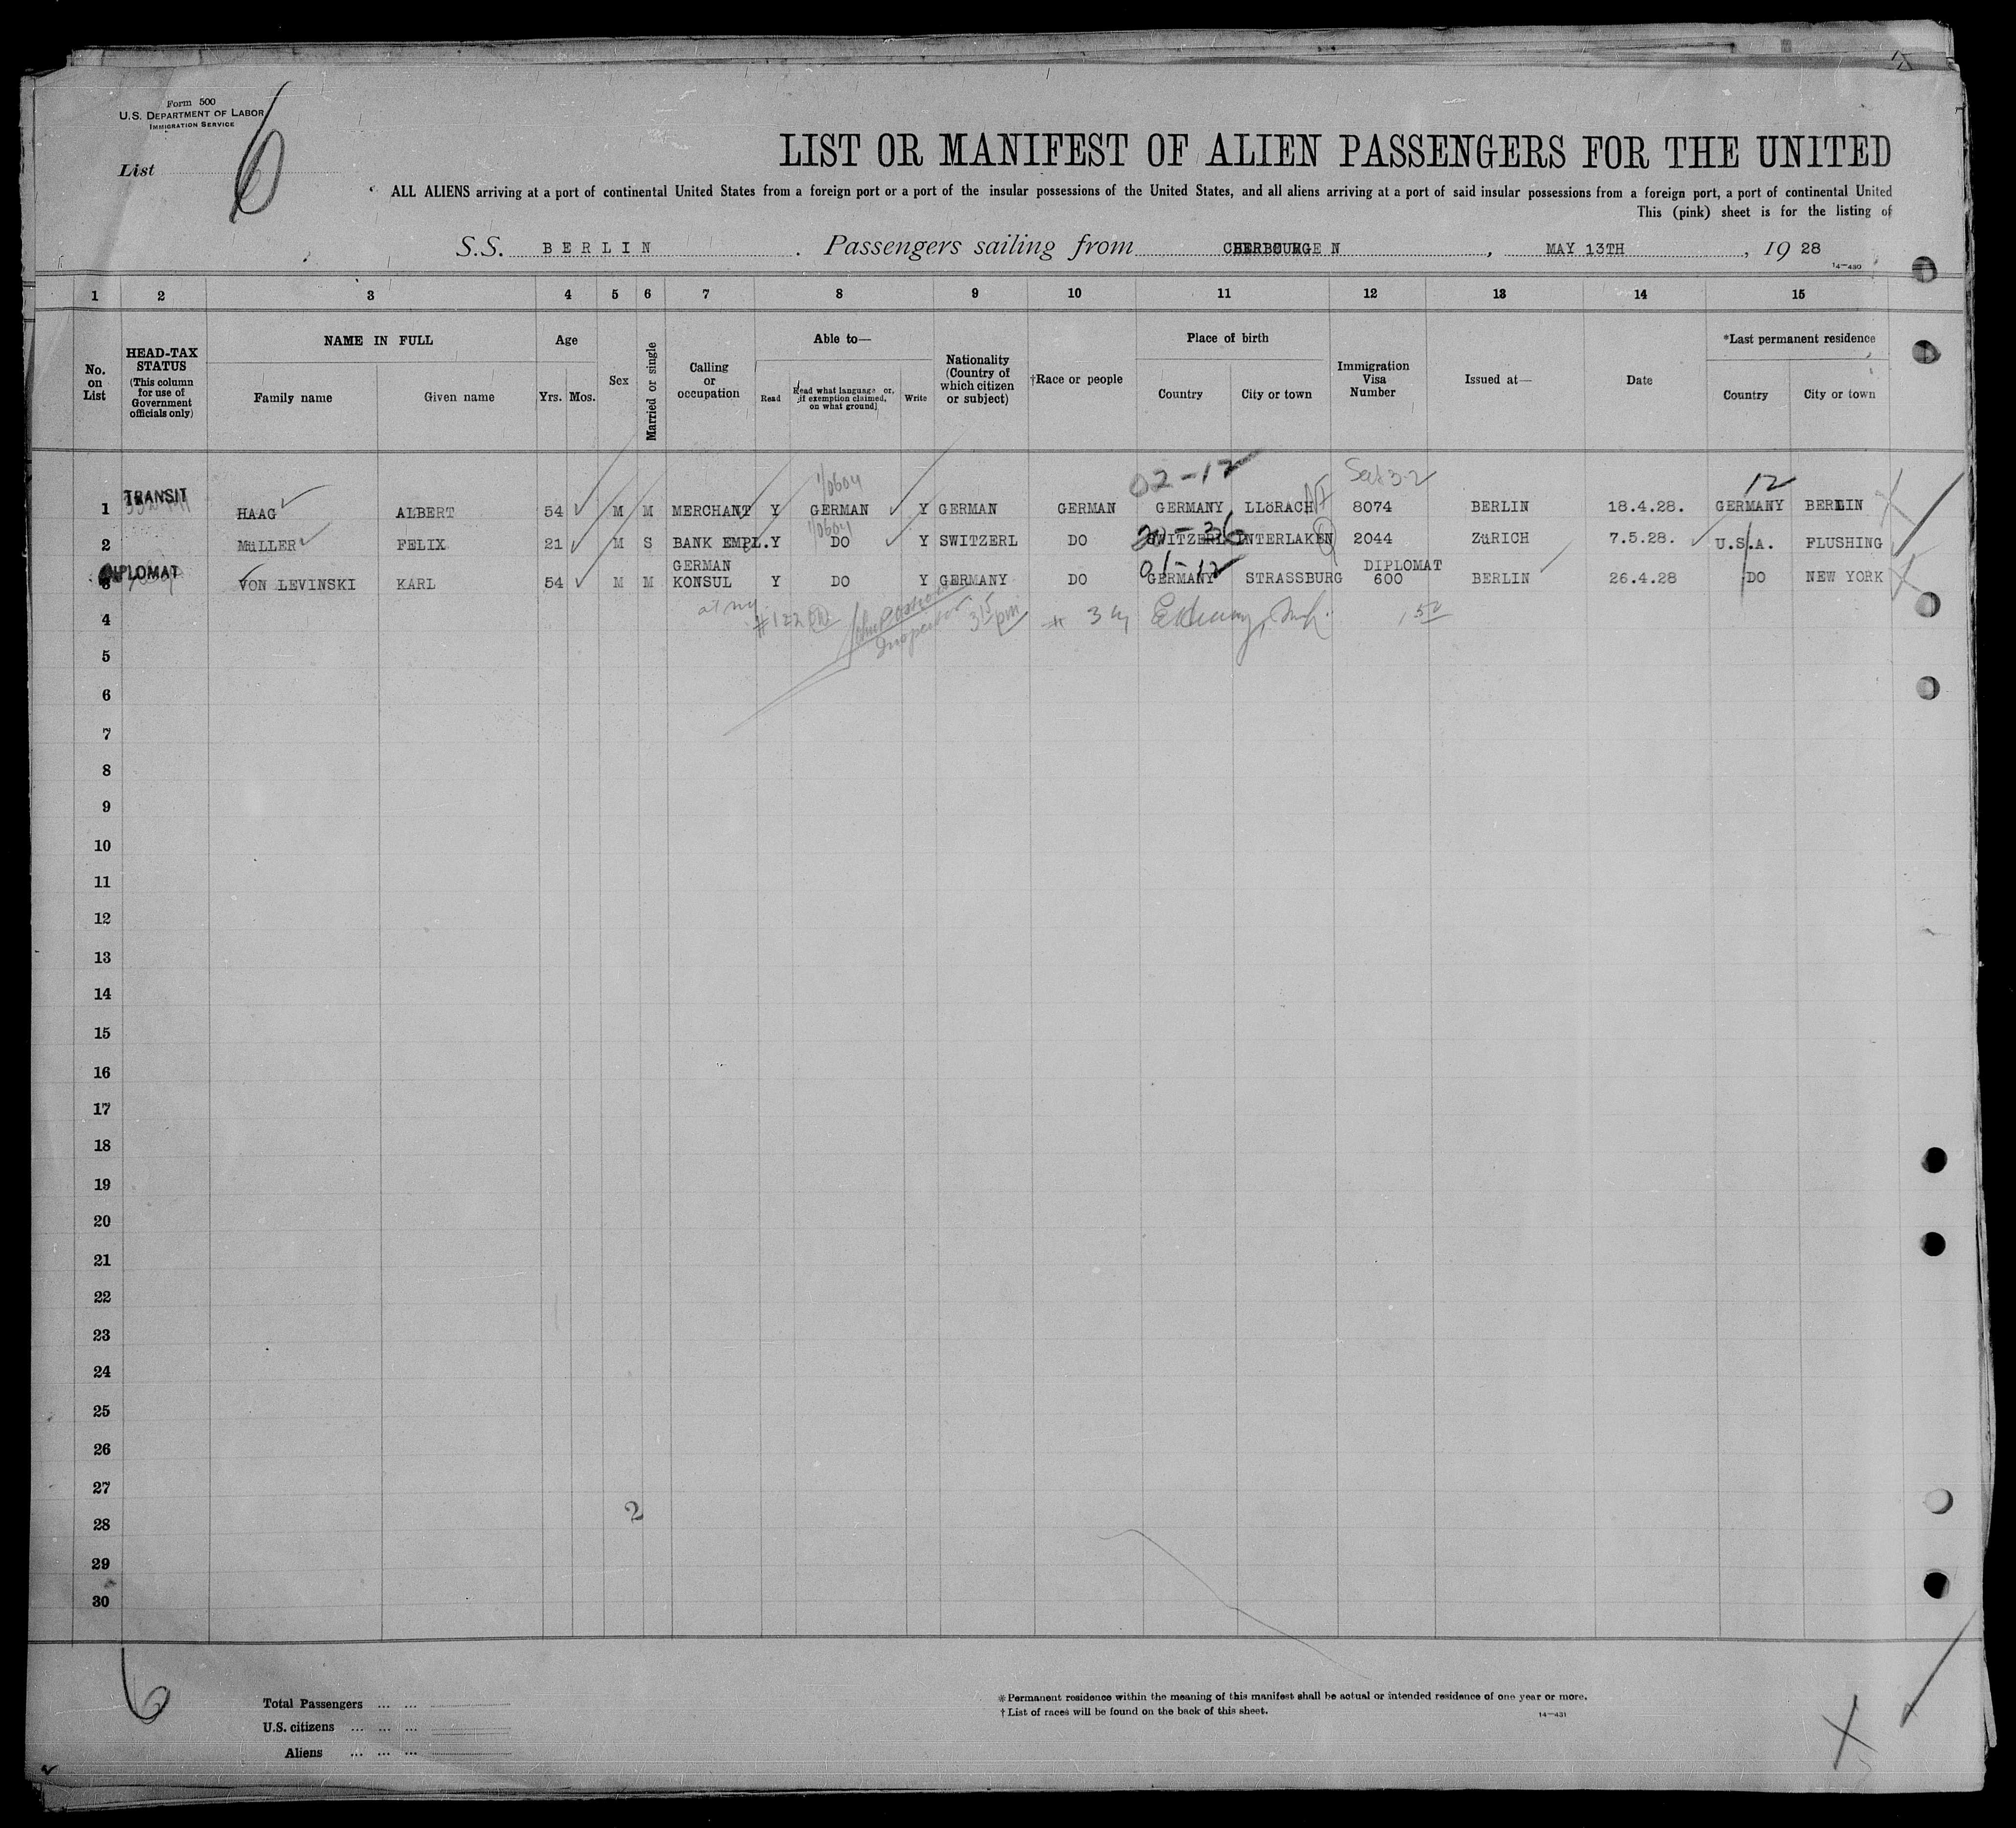 Form 500
U.S. DEPARTMENT OF LABOR
IMMIGRATION SERVICE
List 6
LIST OR MANIFEST OF ALIEN PASSENGERS FOR THE UNITED
ALL ALIENS arriving at a port of continental United States from a foreign port or a port of the insular possessions of the United States, and all aliens arriving at a port of said insular possessions from a foreign port, a port of continental United
This (pink) sheet is for the listing of
S.S. BERLIN. Passengers sailing from CHERBOURG, MAY 13TH, 19 28
14—430
1 2 3 4 5 6 7 8 9 10 11 12 13 14 15
No. on List
HEAD-TAX STATUS (This column for use of Government officials only)
NAME IN FULL
Family name Given name
Age
Yrs. Mos.
Sex
Married or single
Calling or occupation
Able to—
Read Read what language or, if exemption claimed, on what ground Write
Nationality (Country of which citizen or subject)
†Race or people
Place of birth
Country City or town
Immigration Visa Number
Issued at—
Date
*Last permanent residence
Country City or town
02-12 12
1/0604
1 TRANSIT HAAG ALBERT 54 M M MERCHANT Y GERMAN Y GERMAN GERMAN GERMANY LLöRACH 8074 BERLIN 18.4.28. GERMANY BERLIN
1/0604
2 MüLLER FELIX 21 M S BANK EMPL. Y DO Y SWITZERL DO SWITZERL INTERLAKEN 2044 ZüRICH 7.5.28. U.S.A. FLUSHING
01-12
3 DIPLOMAT VON LEVINSKI KARL 54 M M GERMAN KONSUL Y DO Y GERMANY DO GERMANY STRASSBURG DIPLOMAT 600 BERLIN 26.4.28 DO NEW YORK
4 #122 Inspector 315 pm
5
6
7
8
9
10
11
12
13
14
15
16
17
18
19
20
21
22
23
24
25
26
27
2
28
29
30
6
Total Passengers ... ...
U.S. citizens ... ... ...
Aliens ... ... ...
* Permanent residence within the meaning of this manifest shall be actual or intended residence of one year or more.
† List of races will be found on the back of this sheet.
14—431